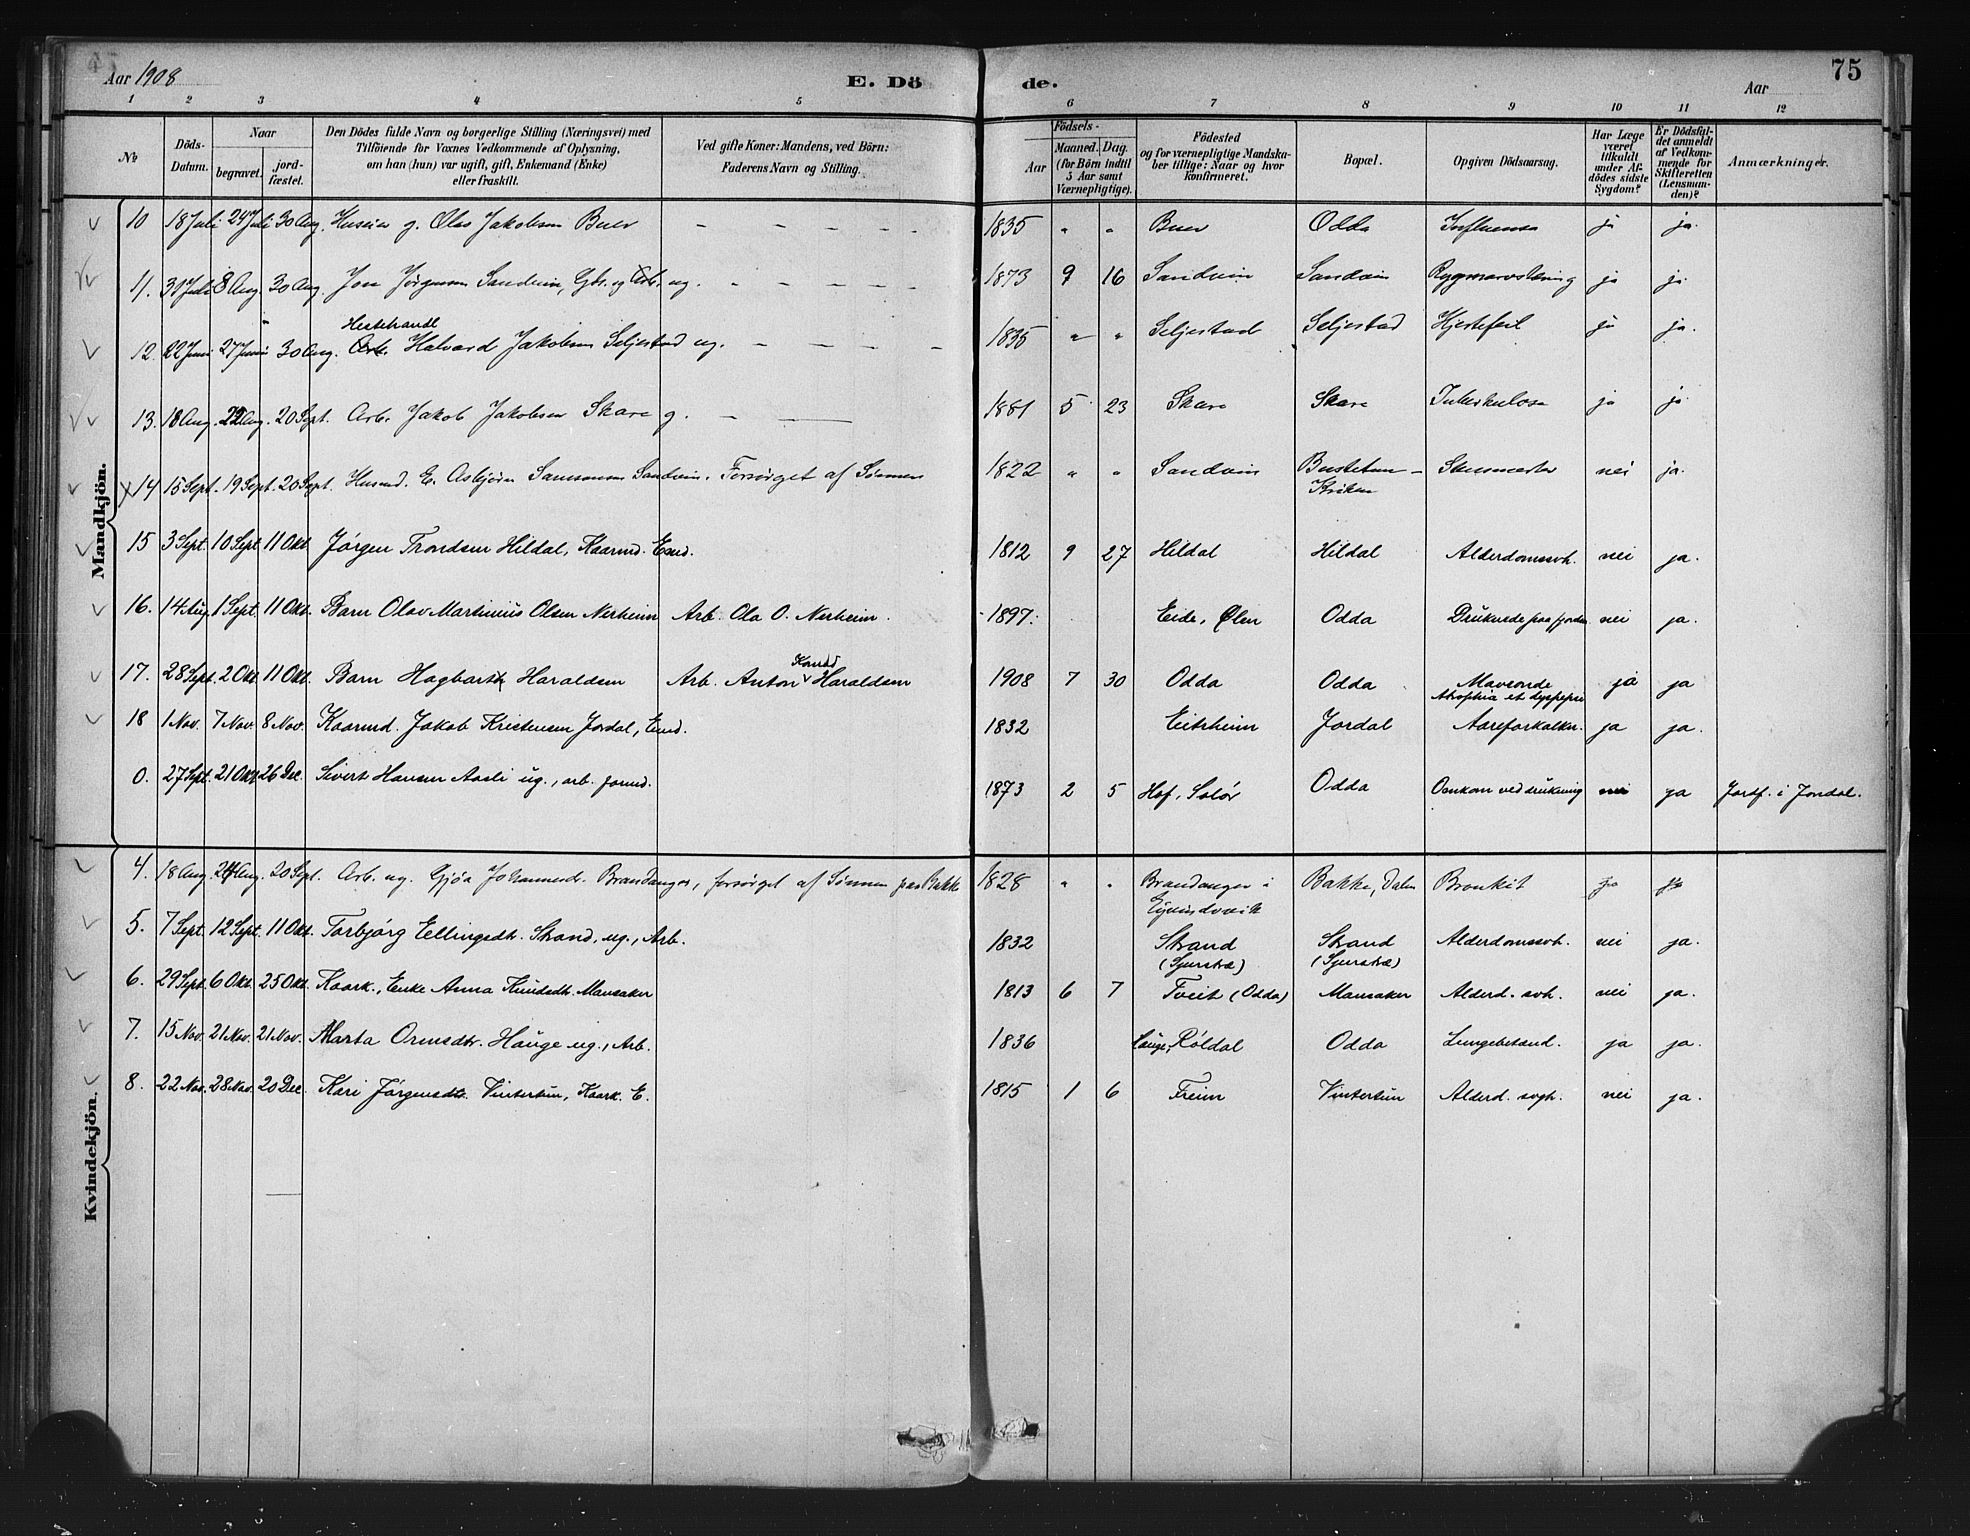 Aar 1908
E. Dö de.
Aar
75
1 2 3 4 5 6 7 8 9 10 11 12
No
Döds-Datum.
Naar begravet. jord-fæstet.
Den Dödes fulde Navn og borgerlige Stilling (Næringsvei) med Tilföiende for Vaxnes Vedkommende af Oplysning, om han (hun) var ugift, gift, Enkemand (Enke) eller fraskilt.
Ved gifte Koner: Mandens, ved Börn: Faderens Navn og Stilling.
Födsels-
Aar
Maaned. Dag. (for Börn indtil 5 Aar samt Værnepligtige).
Födested og for værnepligtige Mandskaber tillige: Naar og hvor konfirmeret.
Bopæl.
Opgiven Dödsaarsag.
Har Læge været tilkaldt under Afdödes sidste Sygdom?
Er Dödsfaldet anmeldt af Vedkommende for Skifteretten (Lensmanden)?
Anmærkninger.
Mandkjön.
10 18 Juli 24 Juli 30 Aug. g. Olav Jakobsen Buer - - - - - 1835 " " Buer Odda Influensa ja ja.
11. 31 Juli 8 Aug. 30 Aug. Jon Jørgensen Sandvin, ug. - - - - - 1873 9 16 Sandvin Sandvin ja ja
Hestehandl
12. 22 Juni 27 Juni 30 Aug. Arb. Halvard Jakobsen Seljestad ug. - - - - 1835 " " Seljestad Seljestad Hjertefeil ja ja.
13. 18 Aug. 22 Aug. 20 Sept. Arb. Jakob Jakobsen Skare g. - 1881 5 23 Skare Skare Tuberkulose ja ja
14 15 Sept. 19 Sept. 20 Sept. Husmd. E. Asbjørn Samsonsen Sandvin. Forsørget af Sønnen 1822 " " Sandvin nei ja.
15 3 Sept. 10 Sept 11 Okt. Jørgen Trondsen Hildal, Kaarmd. Emd. 1812 9 27 Hildal Hildal Alderdomssvh. nei ja.
16. 14 Aug 1 Sept. 11 Okt. Barn Olav Martinius Olsen Nerheim Arb. Ola O. Nerheim. 1897. Eide, Ølen Odda Druknede paa fjorden nei ja.
17. 28 Sept. 2 Okt. 11 Okt. Barn Hagbart Haraldsen Arb. Anton Konrad Haraldsen 1908 7 30 Odda Odda Maveonde Atrophia et dyspepsi ja ja
18 1 Nov. 7 Nov. 8 Nov. Kaarmd. Jakob Kristensen Jordal, Emd. 1832 Eitrheim Jordal Aareforkalkn. ja ja.
0. 27 Sept. 21 Okt 26 Dec. Sivert Hansen Aasli ug., arb. formd. 1873 2 5 Hof, Solør Odda Omkom ved drukning nei ja Jordf. i Jondal.
Kvindekjön.
4. 18 Aug. 24 Aug. 20 Sept. Arb. ug. Gjøa Johannesdr. Brandanger, forsørget af Sønnen paa Bakke 1828 " " Brandanger i Eyvindvik Bakke, Dalen Bronkit ja ja
5. 7 Sept. 12 Sept. 11 Okt. Torbjørg Ellingsdtr. Strand, ug., Arb. 1832 Strand (Sjerstræ) Strand (Sjerstræ) Alderdomssvh. nei ja.
6. 29 Sept. 6 Okt. 25 Okt. Kaark., Enke Anna Knudsdtr. Mansaker 1813 6 7 Tveit (Odda) Mansaker Alderd. svh. nei ja.
7. 15 Nov. 21 Nov. 21 Nov. Marta Ormsdtr. Hauge ug., Arb. 1836 Hauge, Røldal Odda Lungebetænd. ja ja.
8. 22 Nov. 28 Nov. 20 Dec. Kari Jørgensdtr. Vintertun, Kaark. E. 1815 1 6 Freim Vintertun Alderd. svgh. nei ja.